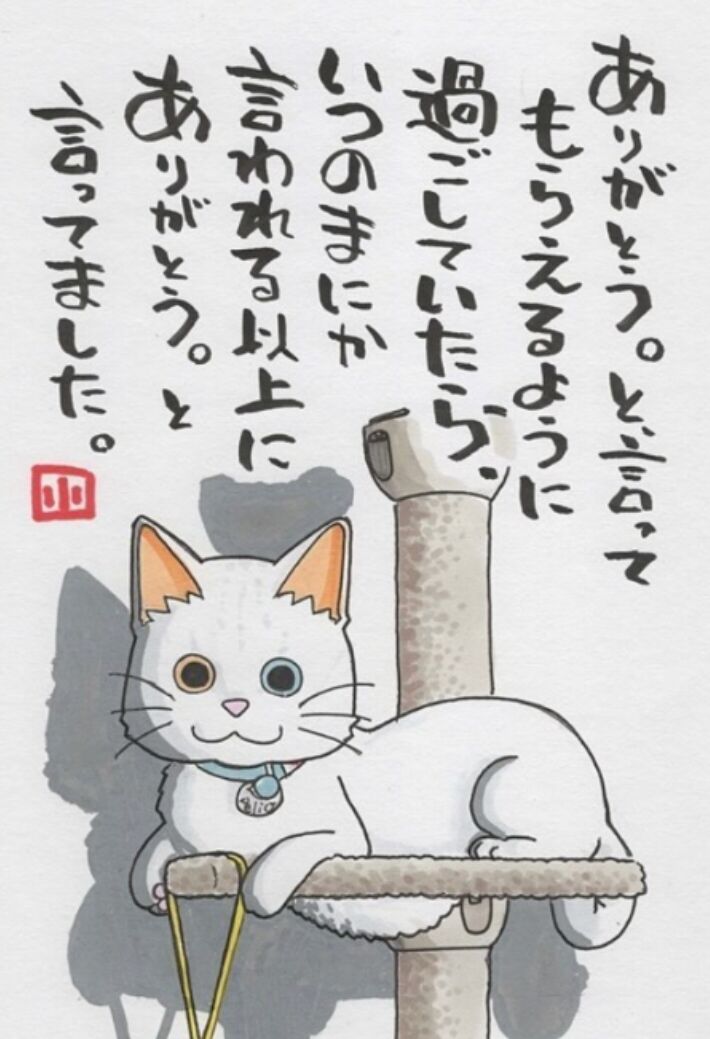 ありがとう。と、言って
もらえるように
過ごしていたら、
いつのまにか
言われる以上に
ありがとう。と
言ってました。
小